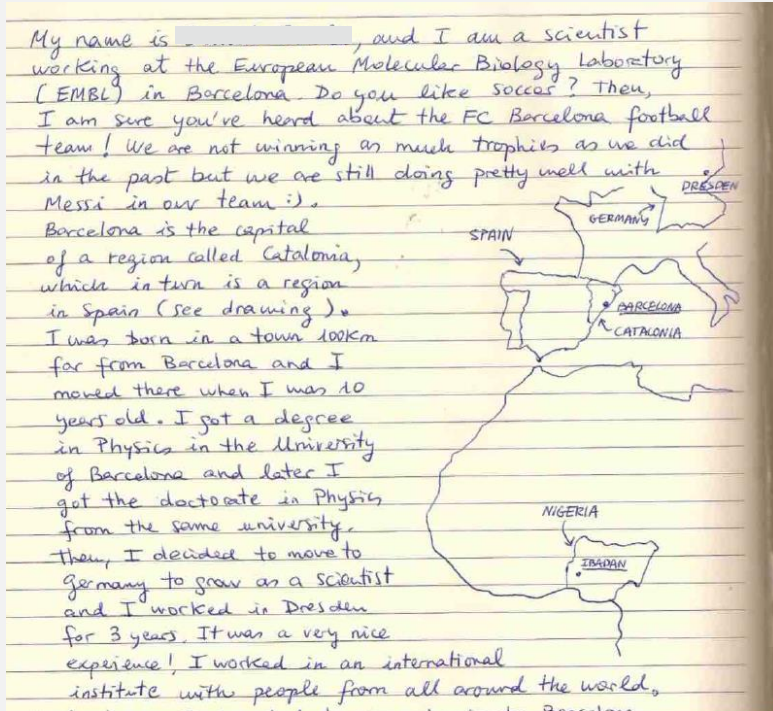 My name is , and I am a scientist
working at the European Molecular Biology Laboratory
(EMBL) in Barcelona. Do you like soccer? Then,
I am sure you've heard about the FC Barcelona football
team! We are not winning as much trophies as we did
in the past but we are still doing pretty well with
Messi in our team :).
Barcelona is the capital
of a region called Catalonia,
which in turn is a region
in Spain (see drawing).
I was born in a town 100km
far from Barcelona and I
moved there when I was 10
years old. I got a degree
in Physics in the University
of Barcelona and later I
got the doctorate in Physics
from the same university.
Then, I decided to move to
Germany to grow as a scientist
and I worked in Dresden
for 3 years. It was a very nice
experience! I worked in an international
institute with people from all around the world.
DRESDEN
GERMANY
SPAIN
BARCELONA
CATALONIA
NIGERIA
IBADAN